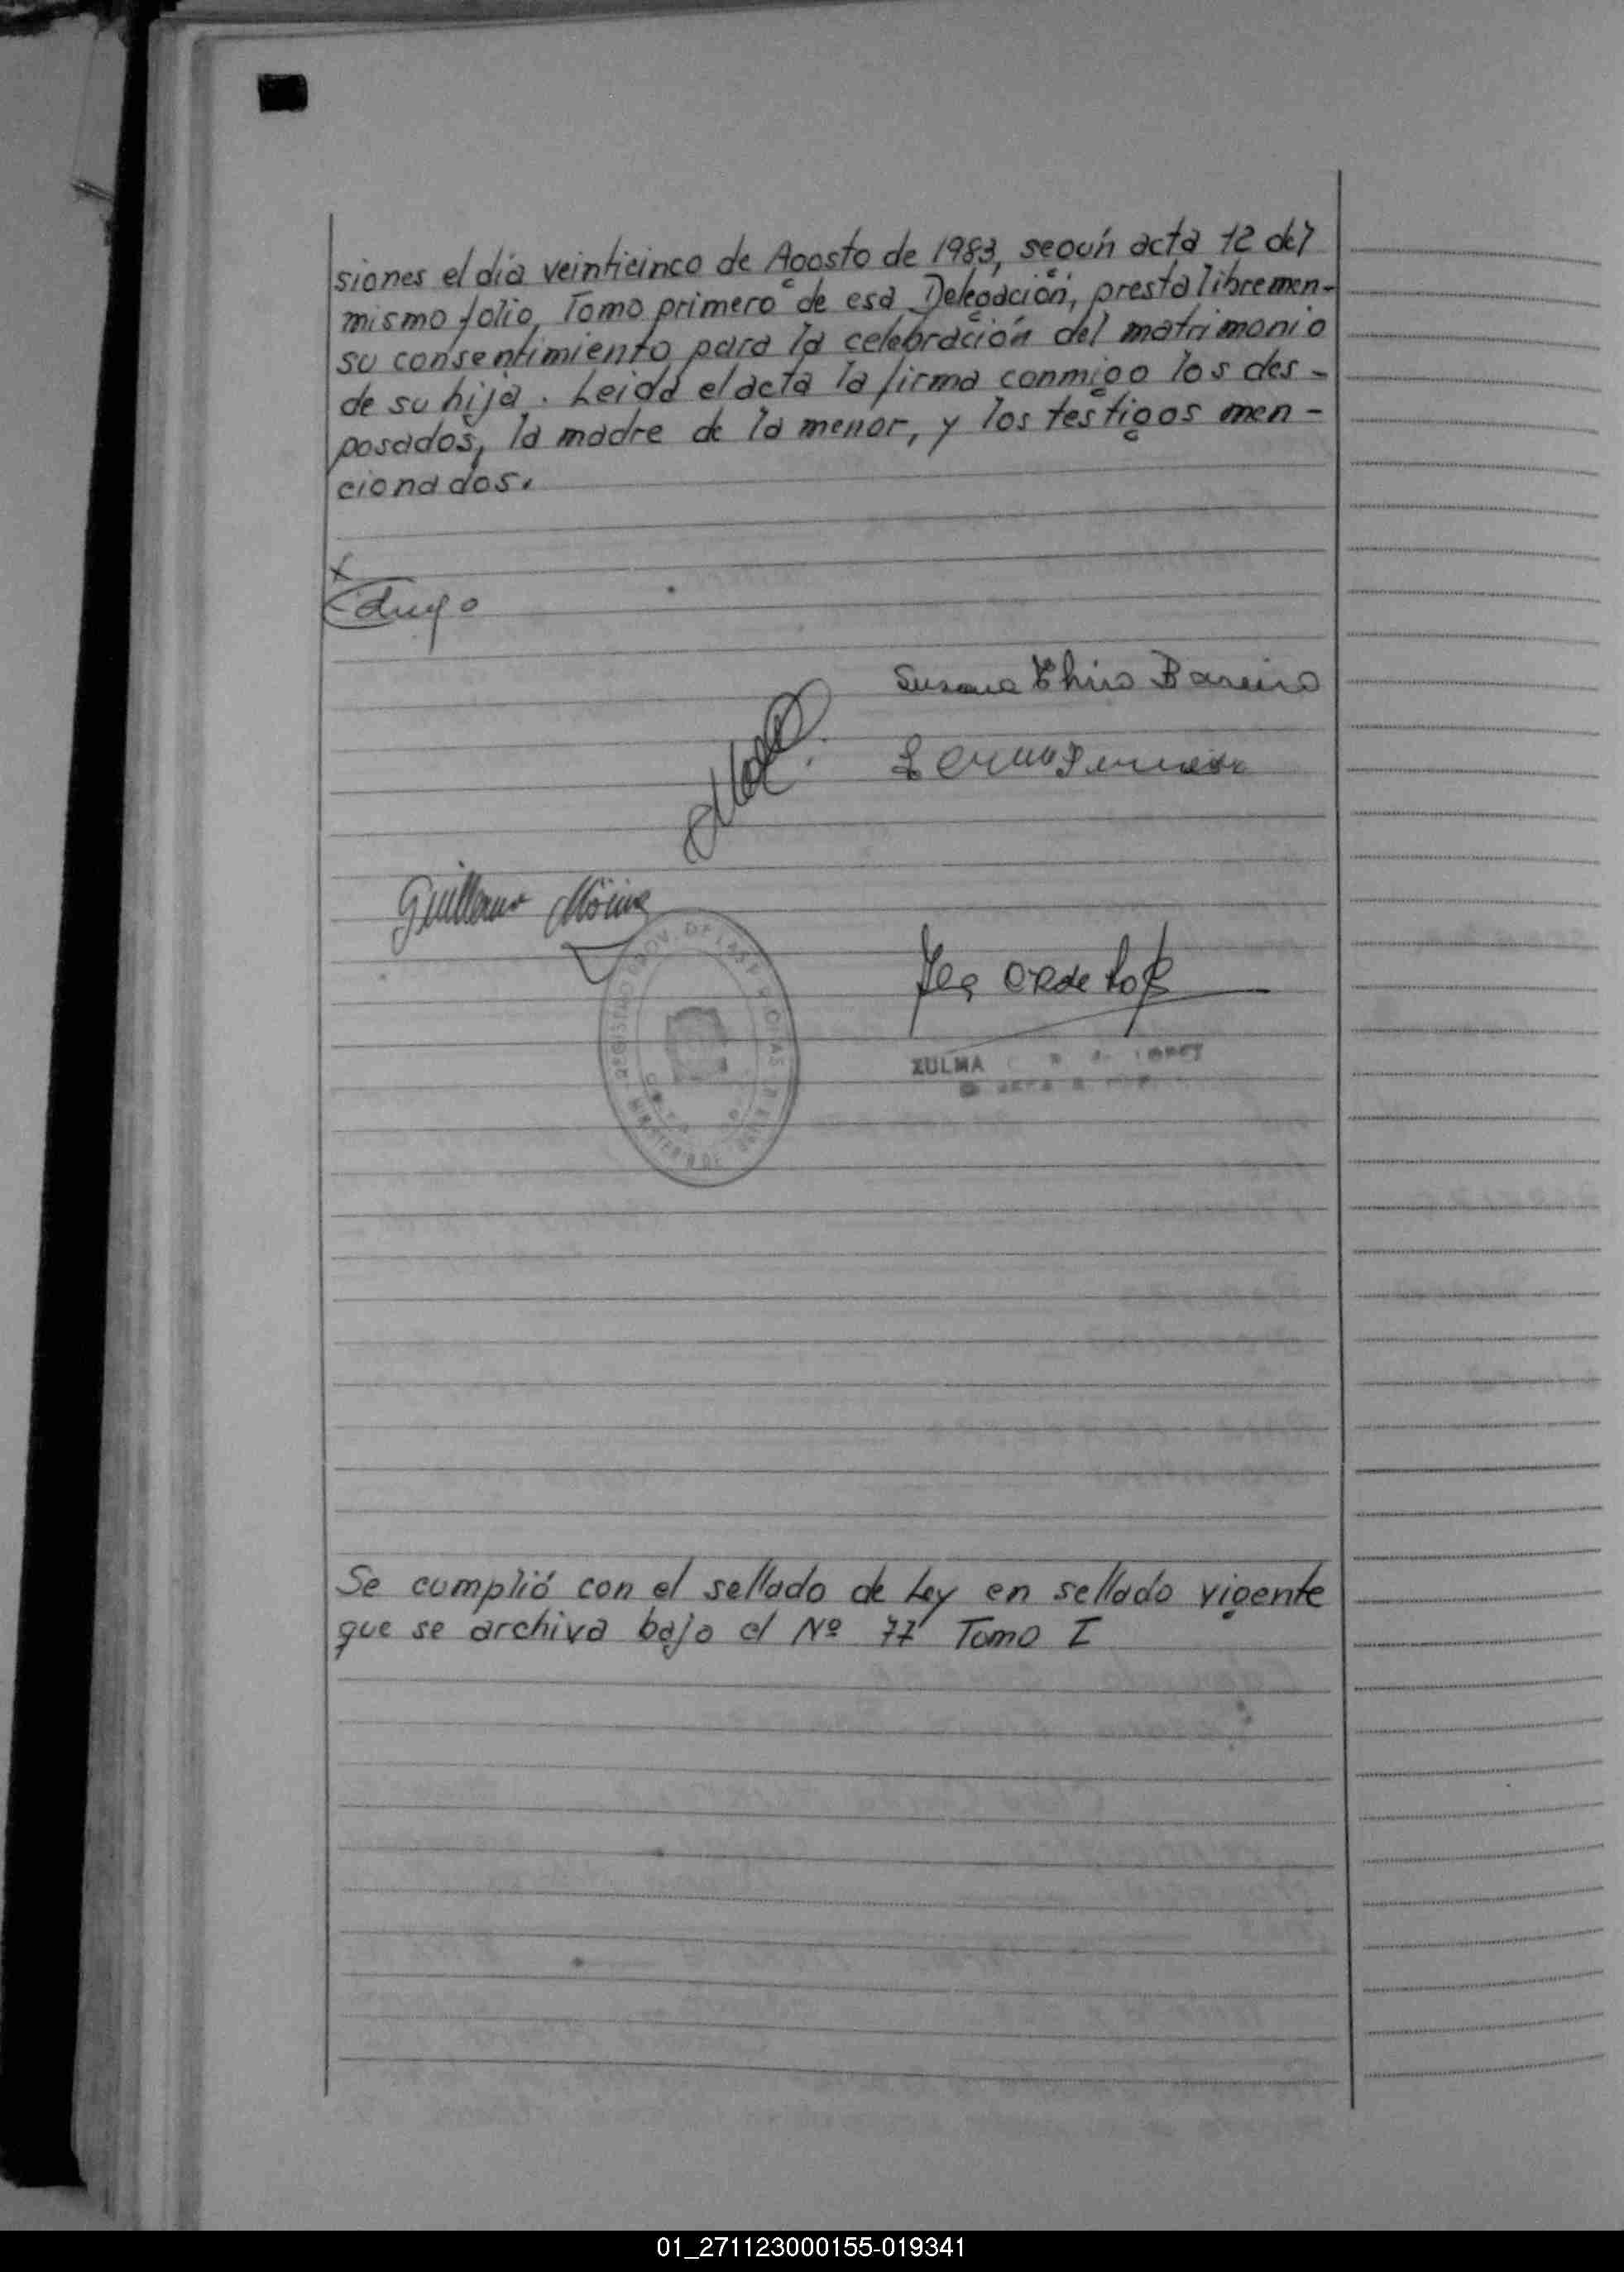 siones el día veinticinco de Agosto de 1983, según acta 12 del
mismo folio, Tomo primero de esa Delegación, presta libremen-
su consentimiento para la celebración del matrimonio
de su hija. Leida el acta la firma conmigo los des-
posados, la madre de la menor, y los testigos men-
cionados.
x
Susana Bareiro
Guillermo
REGISTRO PROV. DE LAS PERSONAS
MINISTERIO DE
ZULMA
Se cumplió con el sellado de Ley en sellado vigente
que se archiva bajo el Nº 77 Tomo I
01_271123000155-019341